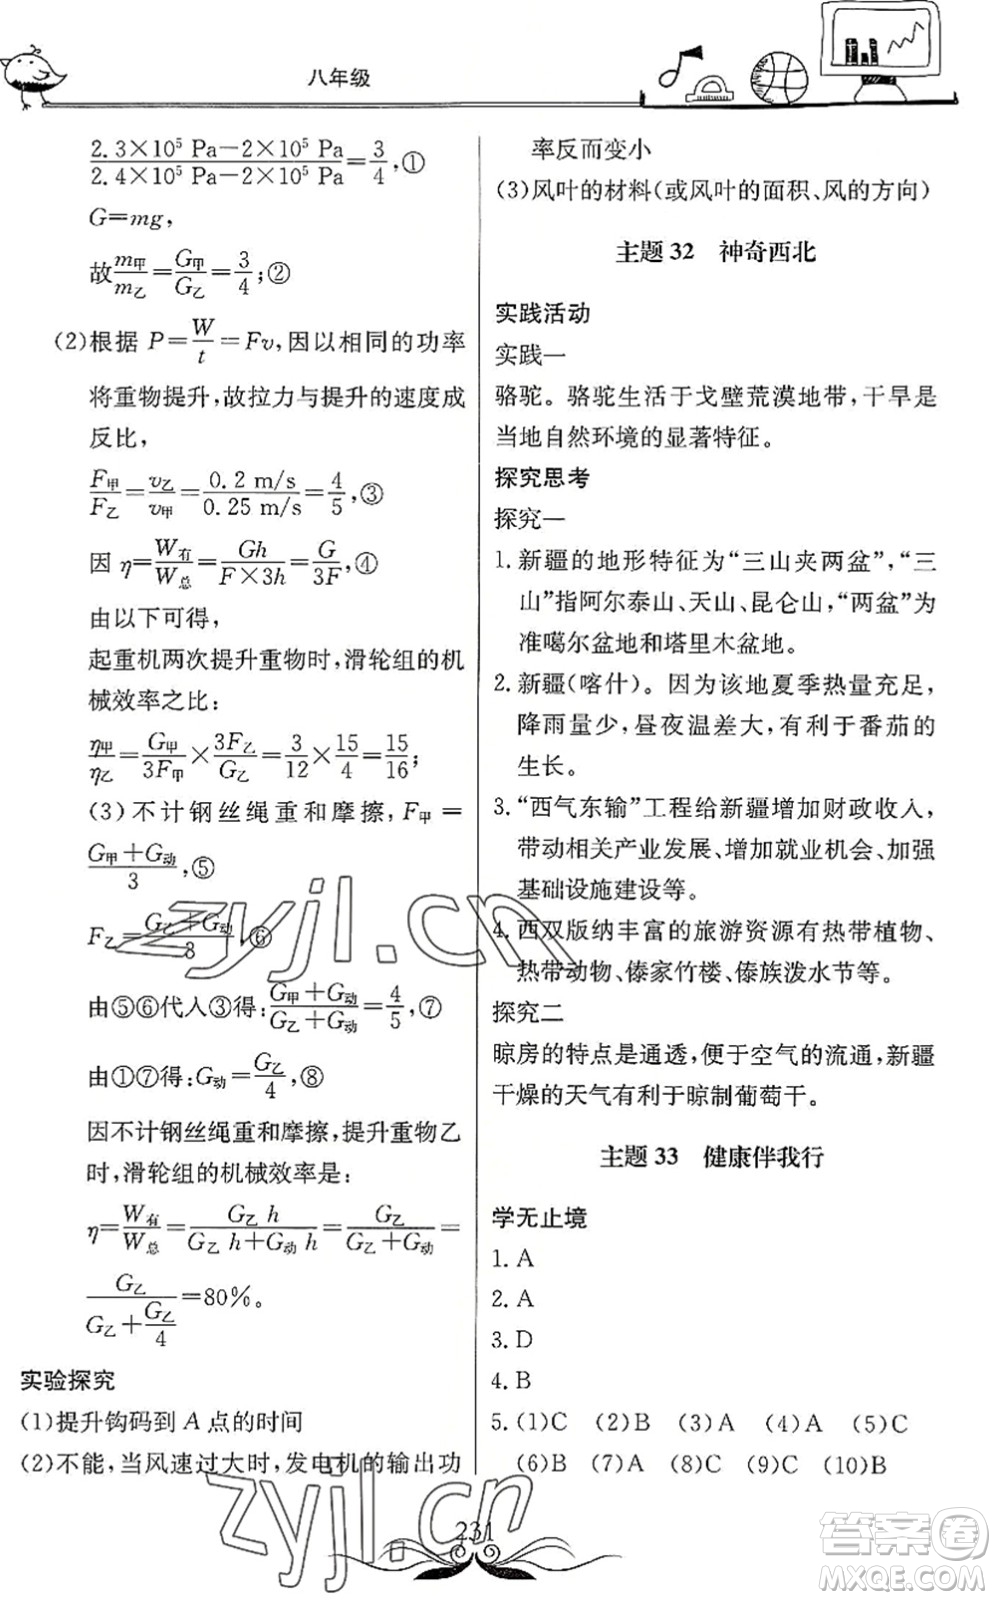 八年级
(2.3×10⁵ Pa−2×10⁵ Pa)/(2.4×10⁵ Pa−2×10⁵ Pa)=3/4,①
G=mg,
故m甲/m乙=G甲/G乙=3/4;②
(2)根据 P=W/t=Fv,因以相同的功率
将重物提升,故拉力与提升的速度成
反比,
F甲/F乙=v乙/v甲=0.2 m/s/0.25 m/s=4/5,③
因 η=W有/W总=Gh/(F×3h)=G/3F,④
由以下可得,
起重机两次提升重物时,滑轮组的机
械效率之比:
η甲/η乙=G甲/3F甲×3F乙/G乙=3/12×15/4=15/16;
(3)不计钢丝绳重和摩擦,F甲=
(G甲+G动)/3,⑤
F乙=(G乙+G动)/3,⑥
由⑤⑥代入③得:(G甲+G动)/(G乙+G动)=4/5,⑦
由①⑦得:G动=G乙/4,⑧
因不计钢丝绳重和摩擦,提升重物乙
时,滑轮组的机械效率是:
η=W有/W总=G乙 h/(G乙 h+G动 h)=G乙/(G乙+G动)=
G乙/(G乙+G乙/4)=80%。
实验探究
(1)提升钩码到 A 点的时间
(2)不能,当风速过大时,发电机的输出功
率反而变小
(3)风叶的材料(或风叶的面积、风的方向)
主题 32 神奇西北
实践活动
实践一
骆驼。骆驼生活于戈壁荒漠地带,干旱是
当地自然环境的显著特征。
探究思考
探究一
1.新疆的地形特征为“三山夹两盆”,“三
山”指阿尔泰山、天山、昆仑山,“两盆”为
准噶尔盆地和塔里木盆地。
2.新疆(喀什)。因为该地夏季热量充足,
降雨量少,昼夜温差大,有利于番茄的
生长。
3.“西气东输”工程给新疆增加财政收入,
带动相关产业发展、增加就业机会、加强
基础设施建设等。
4.西双版纳丰富的旅游资源有热带植物、
热带动物、傣家竹楼、傣族泼水节等。
探究二
晾房的特点是通透,便于空气的流通,新疆
干燥的天气有利于晾制葡萄干。
主题 33 健康伴我行
学无止境
1.A
2.A
3.D
4.B
5.(1)C (2)B (3)A (4)A (5)C
(6)B (7)A (8)C (9)C (10)B
231
zyjl.cn
zyjl.cn
答案圈
MXQE.COM